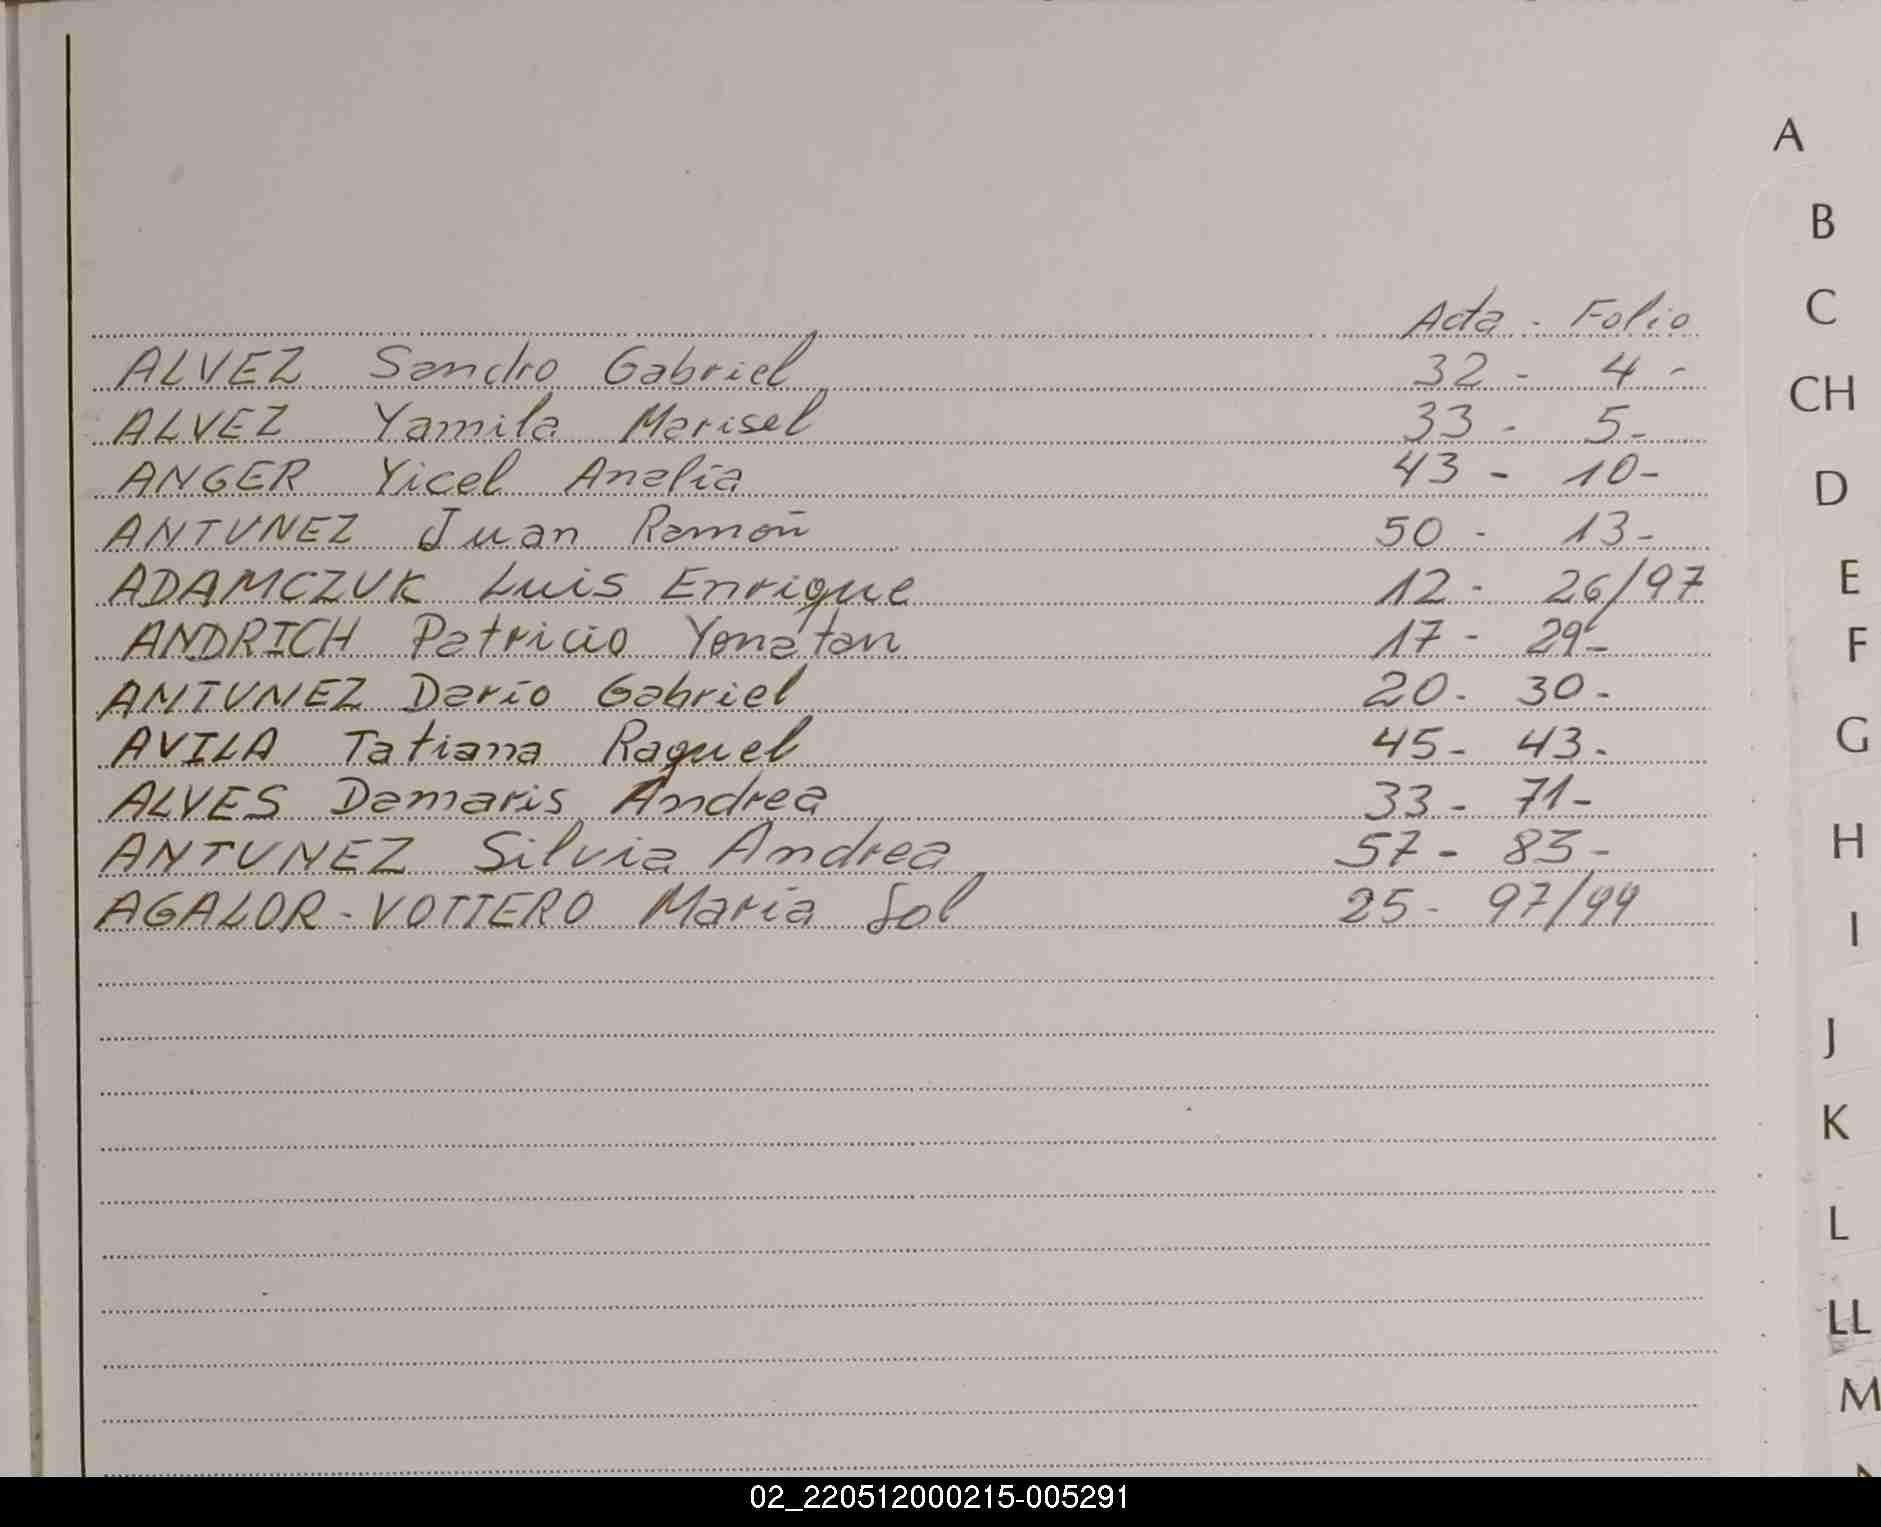 Acta - Folio
ALVEZ Sandro Gabriel 32 - 4 -
ALVEZ Yamila Marisel 33 - 5 -
ANGER Yicel Analía 43 - 10 -
ANTUNEZ Juan Ramón 50 - 13 -
ADAMCZUK Luis Enrique 12 - 26/97
ANDRICH Patricio Yonatan 17 - 29 -
ANTUNEZ Darío Gabriel 20 - 30 -
AVILA Tatiana Raquel 45 - 43 -
ALVES Damaris Andrea 33 - 71 -
ANTUNEZ Silvia Andrea 57 - 83 -
AGALOR - VOTTERO María Sol 25 - 97/99
A
B
C
CH
D
E
F
G
H
I
J
K
L
LL
M
02_220512000215-005291